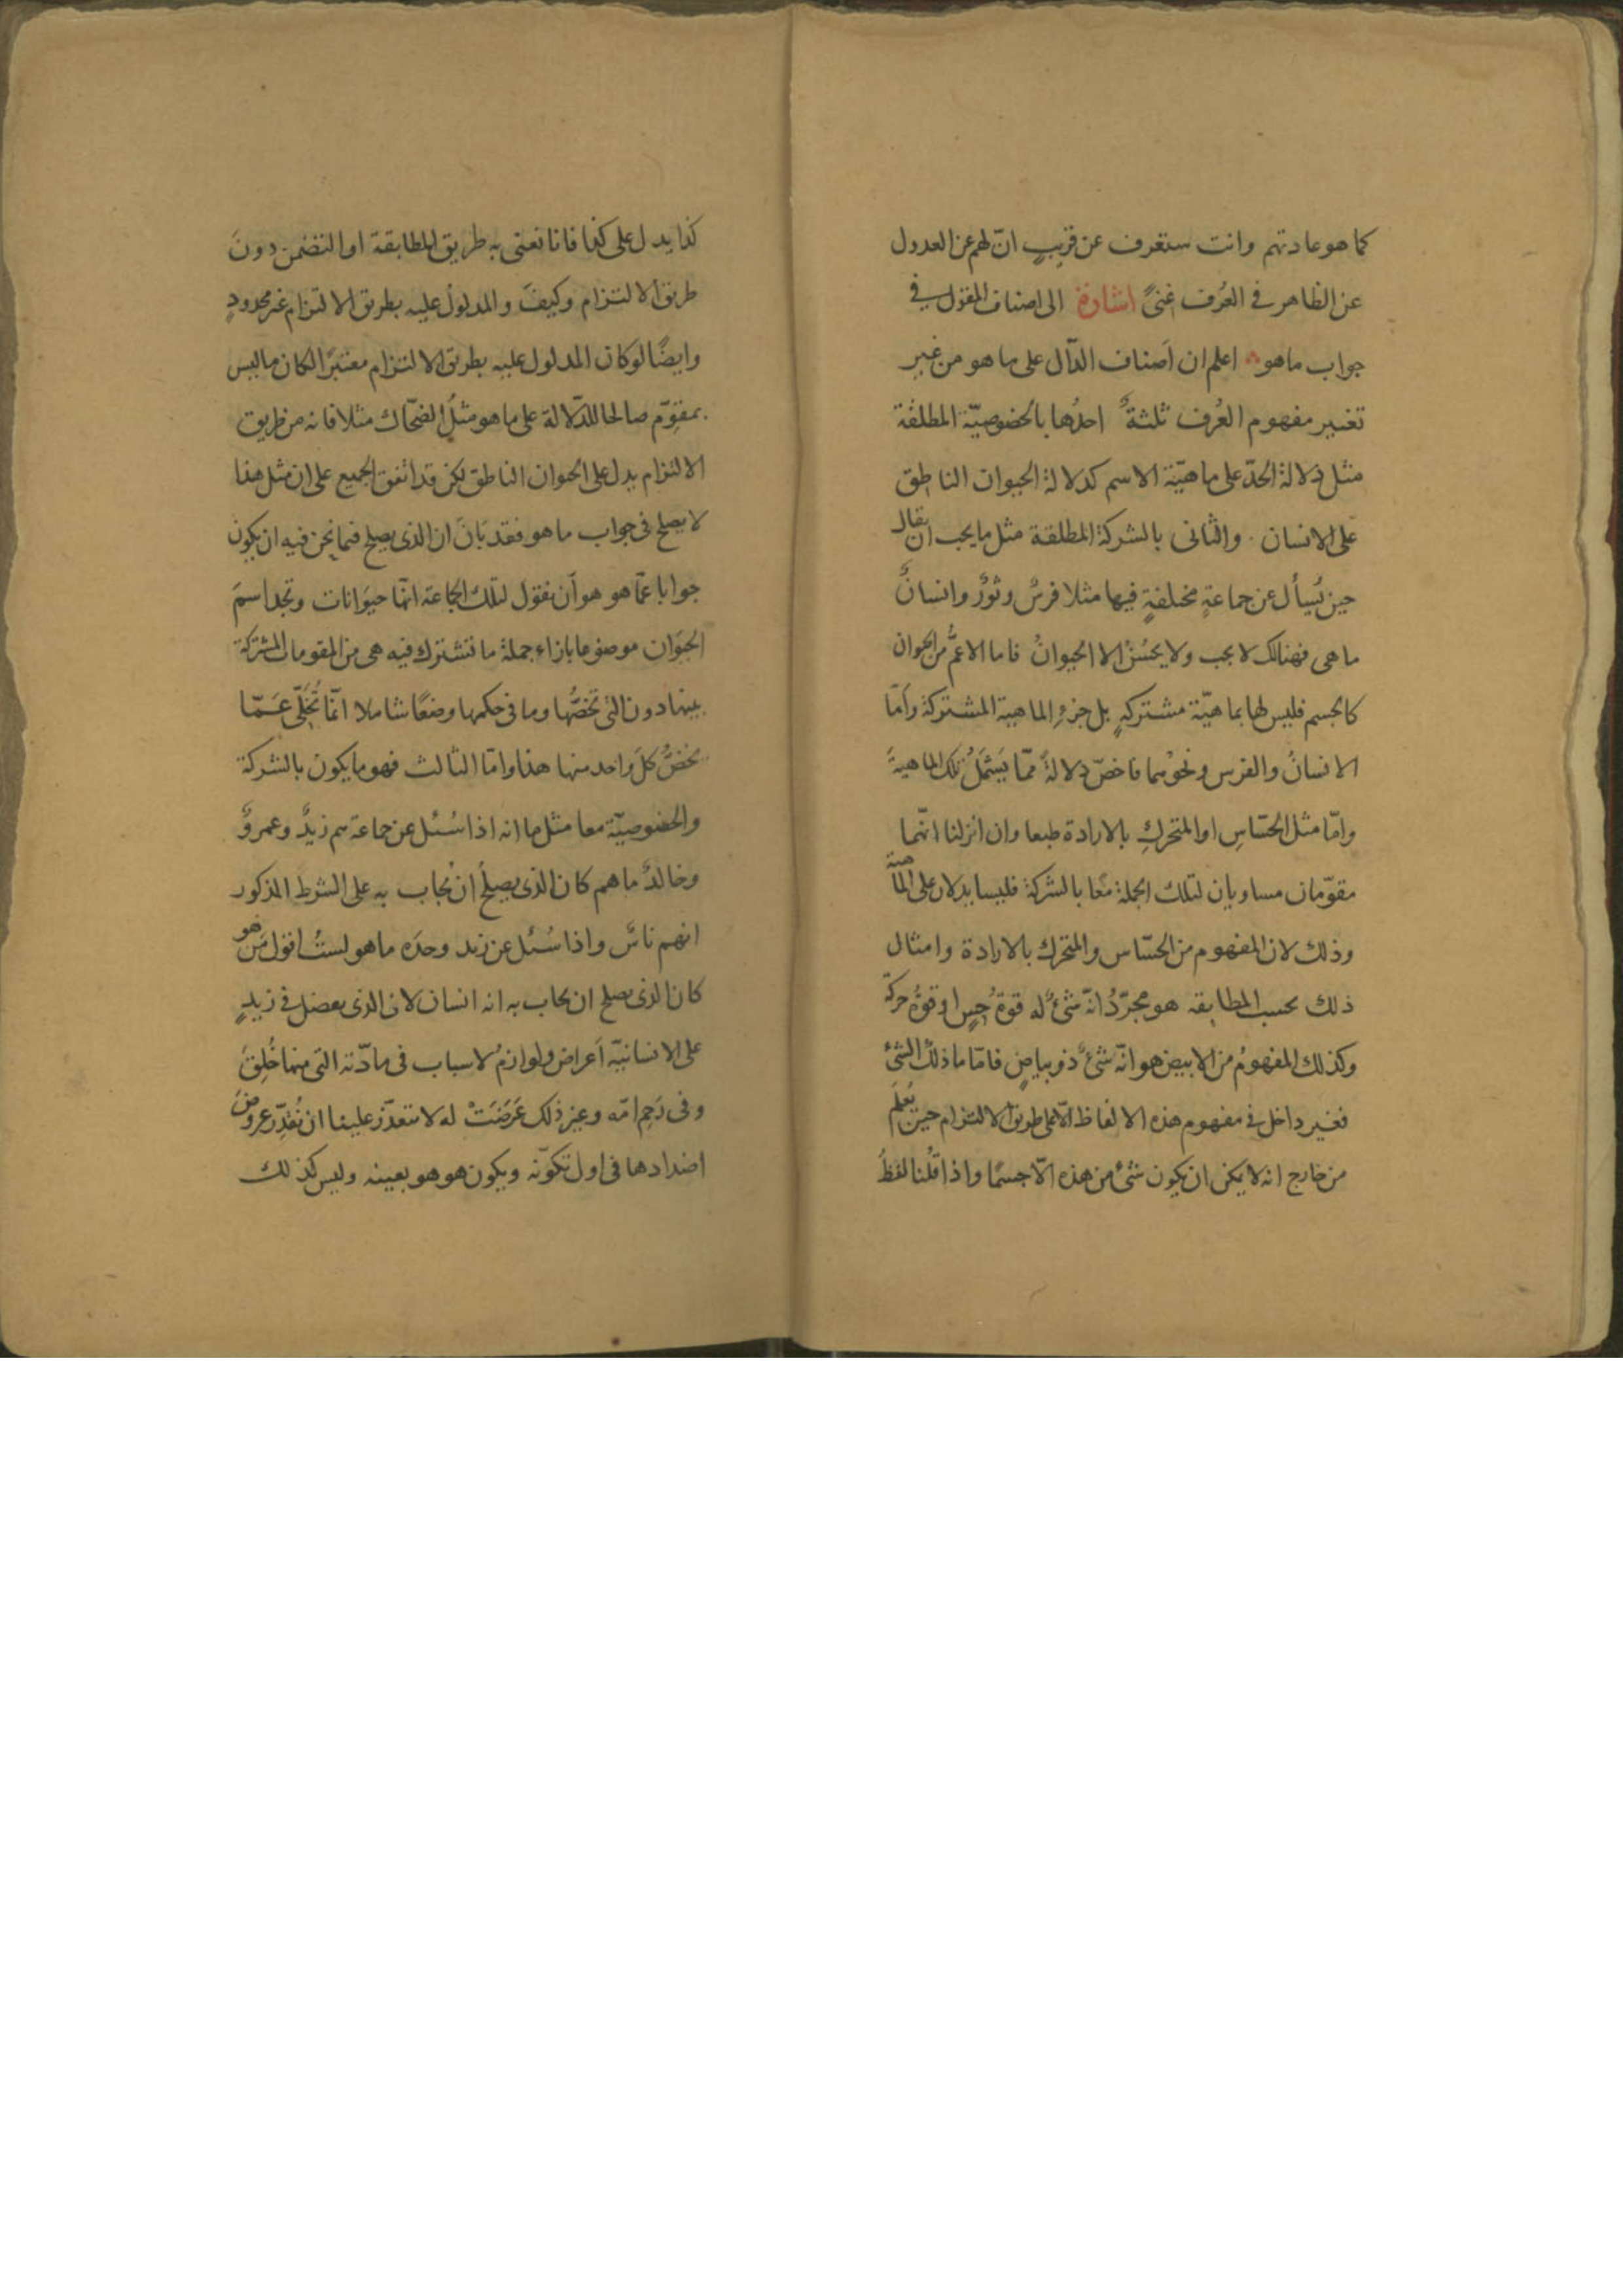 كما هو عادتهم وانت ستعرف عن قريبٍ انّ لهم عن العدول
عن الظاهر في العُرف غنىً اشارة الى اصناف المقول في
جواب ما هو اعلم ان اَصناف الدّال على ما هو من غير
تغيير مفهوم العُرف ثلثةٌ احدُها بالخصوصيّة المطلقة
مثل دلالة الحدّ على ماهيّة الاسم كدلالة الحيوان الناطق
على الانسان والثانى بالشركة المطلقة مثل ما يجب ان يقال
حين يُسأل عن جماعةٍ مختلفةٍ فيها مثلا فرسٌ وثورٌ وانسانٌ
ما هى فهنالك لا يجب ولا يحسُنُ الا الحيوانُ فاما الاعمُّ من الحيوان
كالجسم فليس لها بماهيّة مشتركةٍ بل جزءِ الماهية المشتركة وأمّا
الانسانُ والفرس ونحوُهما فاخصّ دلالةً ممّا يَشمَلُ تلك الماهيةَ
وامّا مثل الحسّاسِ او المتحركِ بالارادة طبعا وان انزلنا انّهما
مقوّمان مساويان لتلك الجملة معًا بالشركة فليسا يدلان على الماهية
وذلك لان المفهوم من الحسّاس والمتحرك بالارادة وامثال
ذلك بحسب المطابقه هو مجرّدُ انّه شئٌ له قوةُ حِسٍ او قوةُ حركة
وكذلك المفهومُ من الابيض هو انّه شئٌ ذو بياضٍ فامّا ما ذلك الشئ
فغير داخل في مفهوم هذه الالفاظ الّا على طريق الالتزام حين يُعلَم
من خارج انه لا يمكن ان يكون شئ من هذه الّا جسمًا واذا قُلنا لفظُ
كذا يدل على كذا فانا نعنى به طريق المطابقة او التضمن دونَ
طريق الالتزام وكيفَ والمدلولُ عليه بطريق الالتزام غير محدودٍ
وايضًا لو كان المدلول عليه بطريق الالتزام معتبرًا لكان ما ليس
بمقوّم صالحا للدّلالة على ما هو مثلُ الضحّاك مثلا فانه من طريق
الالتزام يدل على الحيوان الناطق لكن قد اتّفق الجميع على ان مثل هذا
لا يصلح فى جواب ما هو فقد بَانَ ان الذى يصلح فيما نحن فيه ان يكون
جوابا عمّا هو هو أن نقول لتلك الجماعة انها حيَوانات وتجد اسمَ
الحيَوان موضوعا بازاء جملة ما تشترك فيه هى من المقومات المشتركة
بينها دون التى تخصُّها وما فى حكمها وضعًا شاملا انّما تُخَلّى عَمّا
يخصُّ كلَّ واحد منها هذا وامّا الثالث فهو ما يكون بالشركة
والخصوصيّة معا مثل ما انه اذا سُئل عن جماعة هم زيدٌ وعمروٌ
وخالدٌ ما هم كان الذى يصلُح ان يُجاب به على الشرط المذكور
انهم ناسٌ واذا سُئل عن زيد وحدَه ما هو لستُ اقول مَن هو
كان الذى يصلح ان يجاب به انه انسان لان الذى يفضل في زيدٍ
على الانسانيّة اَعراض ولوازمُ لاسباب فى مادّته التى منها خُلِقَ
وفى رَحِم امّه وغير ذلك عَرَضَتْ له لا يتعذّر علينا ان نُقدِّر عروضَ
اضدادها فى اول تكوّنه ويكون هو هو بعينه وليس كذلك